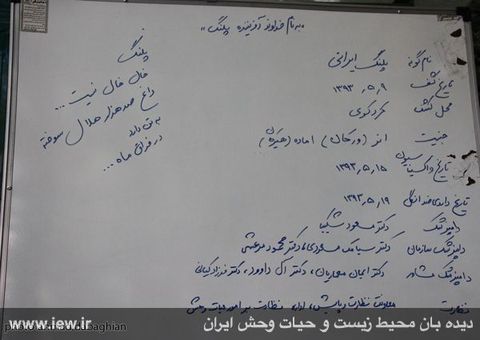 «به نام خداوند آفریننده پلنگ»
نام گونه پلنگ ایرانی
تاریخ کشف ۱۳۹۳٫۵٫۹
محل کشف کردکوی
جنسیت نر (ورکان) ماده (هیرکان)
تاریخ واکسیناسیون ۱۳۹۳٫۵٫۱۵
تاریخ داروی ضد انگل ۱۳۹۳٫۵٫۱۹
دامپزشک دکتر مسعود شکیبا
دامپزشک سازمان دکتر سیامک مسعودی، دکتر محمود مرعشی
دامپزشک مشاور دکتر ایمان معماریان، دکتر داوود، دکتر فرزاد کیانی
نظارت معاونت نظارت و پایش، اداره نظارت بر امور حیات وحش
پلنگ
خال خال نیست ...
داغ صد هزار هلال سوخته
به تن دارد
در فراق ماه ...
www.iew.ir
دیده بان محیط زیست و حیات وحش ایران